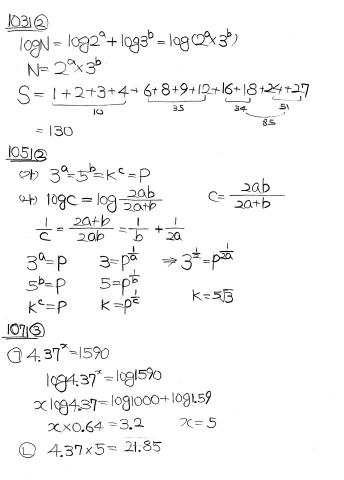 103) ②
logN = log2ᵃ + log3ᵇ = log(2ᵃ×3ᵇ)
N = 2ᵃ×3ᵇ
S = 1+2+3+4+6+8+9+12+16+18+24+27
10 35 34 51
85
= 130
105) ②
(가) 3ᵃ=5ᵇ=kᶜ=P
(나) logC = log 2ab/(2a+b) C = 2ab/(2a+b)
1/C = (2a+b)/2ab = 1/b + 1/2a
3ᵃ=P 3=P^(1/a) ⇒ 3^(1/2)=P^(1/2a)
5ᵇ=P 5=P^(1/b)
kᶜ=P k=P^(1/c) k=5√3
107) ③
㉠ 4.37ˣ=1590
log4.37ˣ=log1590
xlog4.37=log1000+log1.59
x×0.64=3.2 x=5
㉡ 4.37×5=21.85